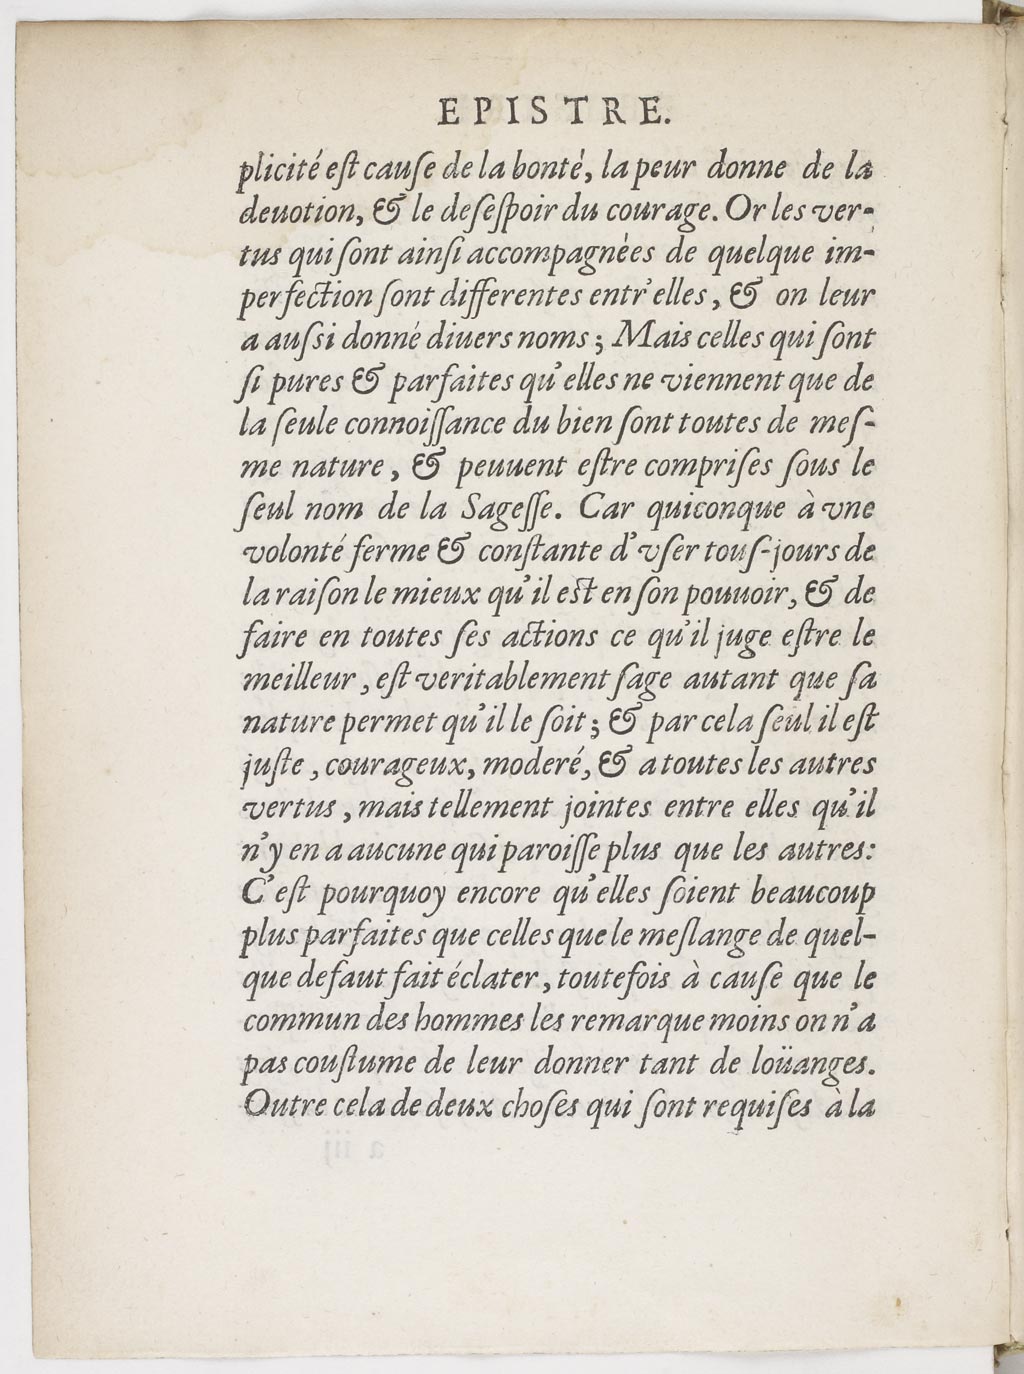 EPISTRE.
plicité eſt cauſe de la bonté, la peur donne de la
deuotion, & le deſeſpoir du courage. Or les ver-
tus qui ſont ainſi accompagnées de quelque im-
perfection ſont differentes entr'elles, & on leur
a auſsi donné diuers noms; Mais celles qui ſont
ſi pures & parfaites qu'elles ne viennent que de
la ſeule connoiſſance du bien ſont toutes de meſ-
me nature, & peuuent eſtre compriſes ſous le
ſeul nom de la Sageſſe. Car quiconque à vne
volonté ferme & conſtante d'vſer touſ-jours de
la raiſon le mieux qu'il eſt en ſon pouuoir, & de
faire en toutes ſes actions ce qu'il juge eſtre le
meilleur, eſt veritablement ſage autant que ſa
nature permet qu'il le ſoit; & par cela ſeul il eſt
juſte, courageux, moderé, & a toutes les autres
vertus, mais tellement jointes entre elles qu'il
n'y en a aucune qui paroiſſe plus que les autres:
C'eſt pourquoy encore qu'elles ſoient beaucoup
plus parfaites que celles que le meſlange de quel-
que defaut fait éclater, toutefois à cauſe que le
commun des hommes les remarque moins on n'a
pas couſtume de leur donner tant de loüanges.
Outre cela de deux choſes qui ſont requiſes à la